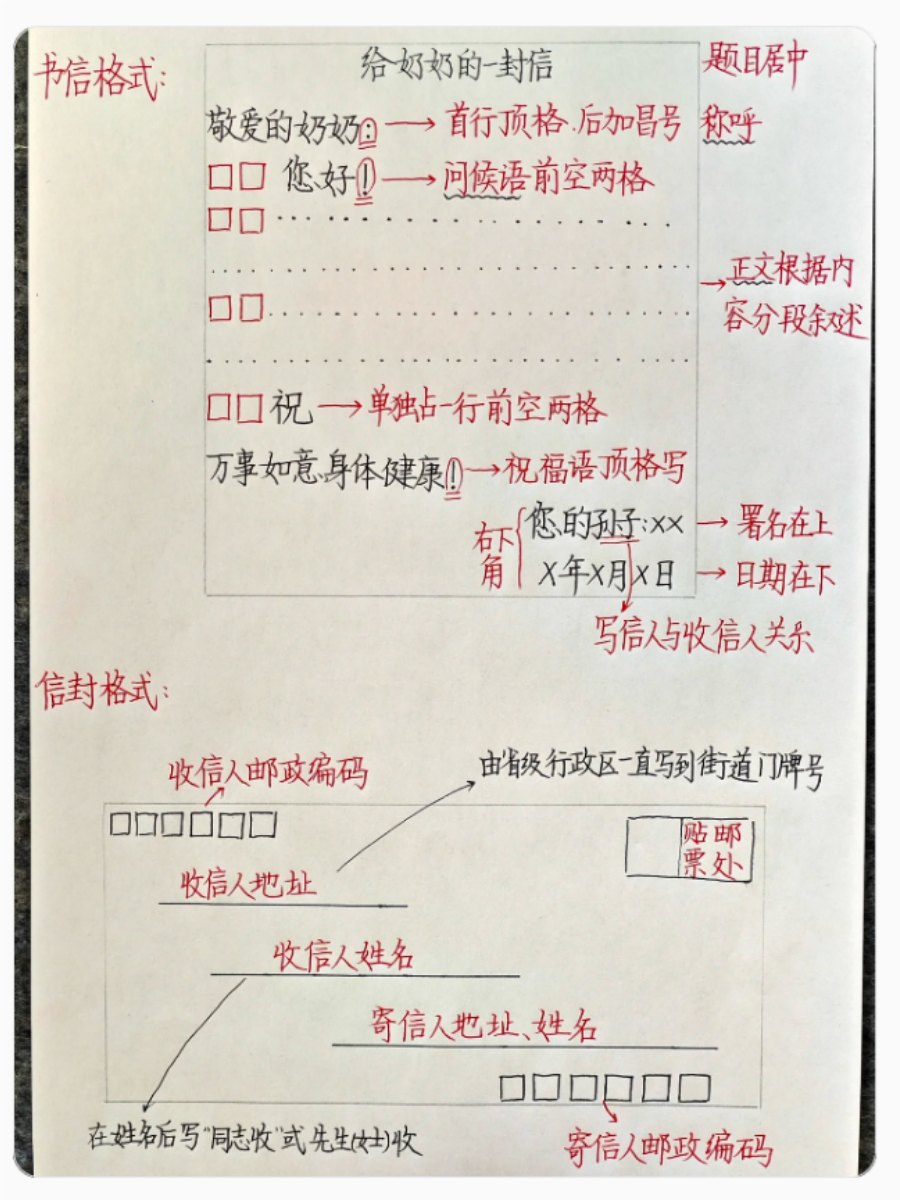 书信格式:
给奶奶的一封信 题目居中
敬爱的奶奶: → 首行顶格.后加冒号 称呼
□□ 您好! → 问候语前空两格
□□ ................
................
→ 正文根据内
容分段叙述
□□ ................
................
□□祝 → 单独占一行前空两格
万事如意、身体健康! → 祝福语顶格写
右下
角
您的孙子:XX → 署名在上
X年X月X日 → 日期在下
写信人与收信人关系
信封格式:
由省级行政区一直写到街道门牌号
收信人邮政编码
□□□□□□
贴邮
票处
收信人地址
收信人姓名
寄信人地址、姓名
□□□□□□
在姓名后写"同志收"或先生(女士)收
寄信人邮政编码